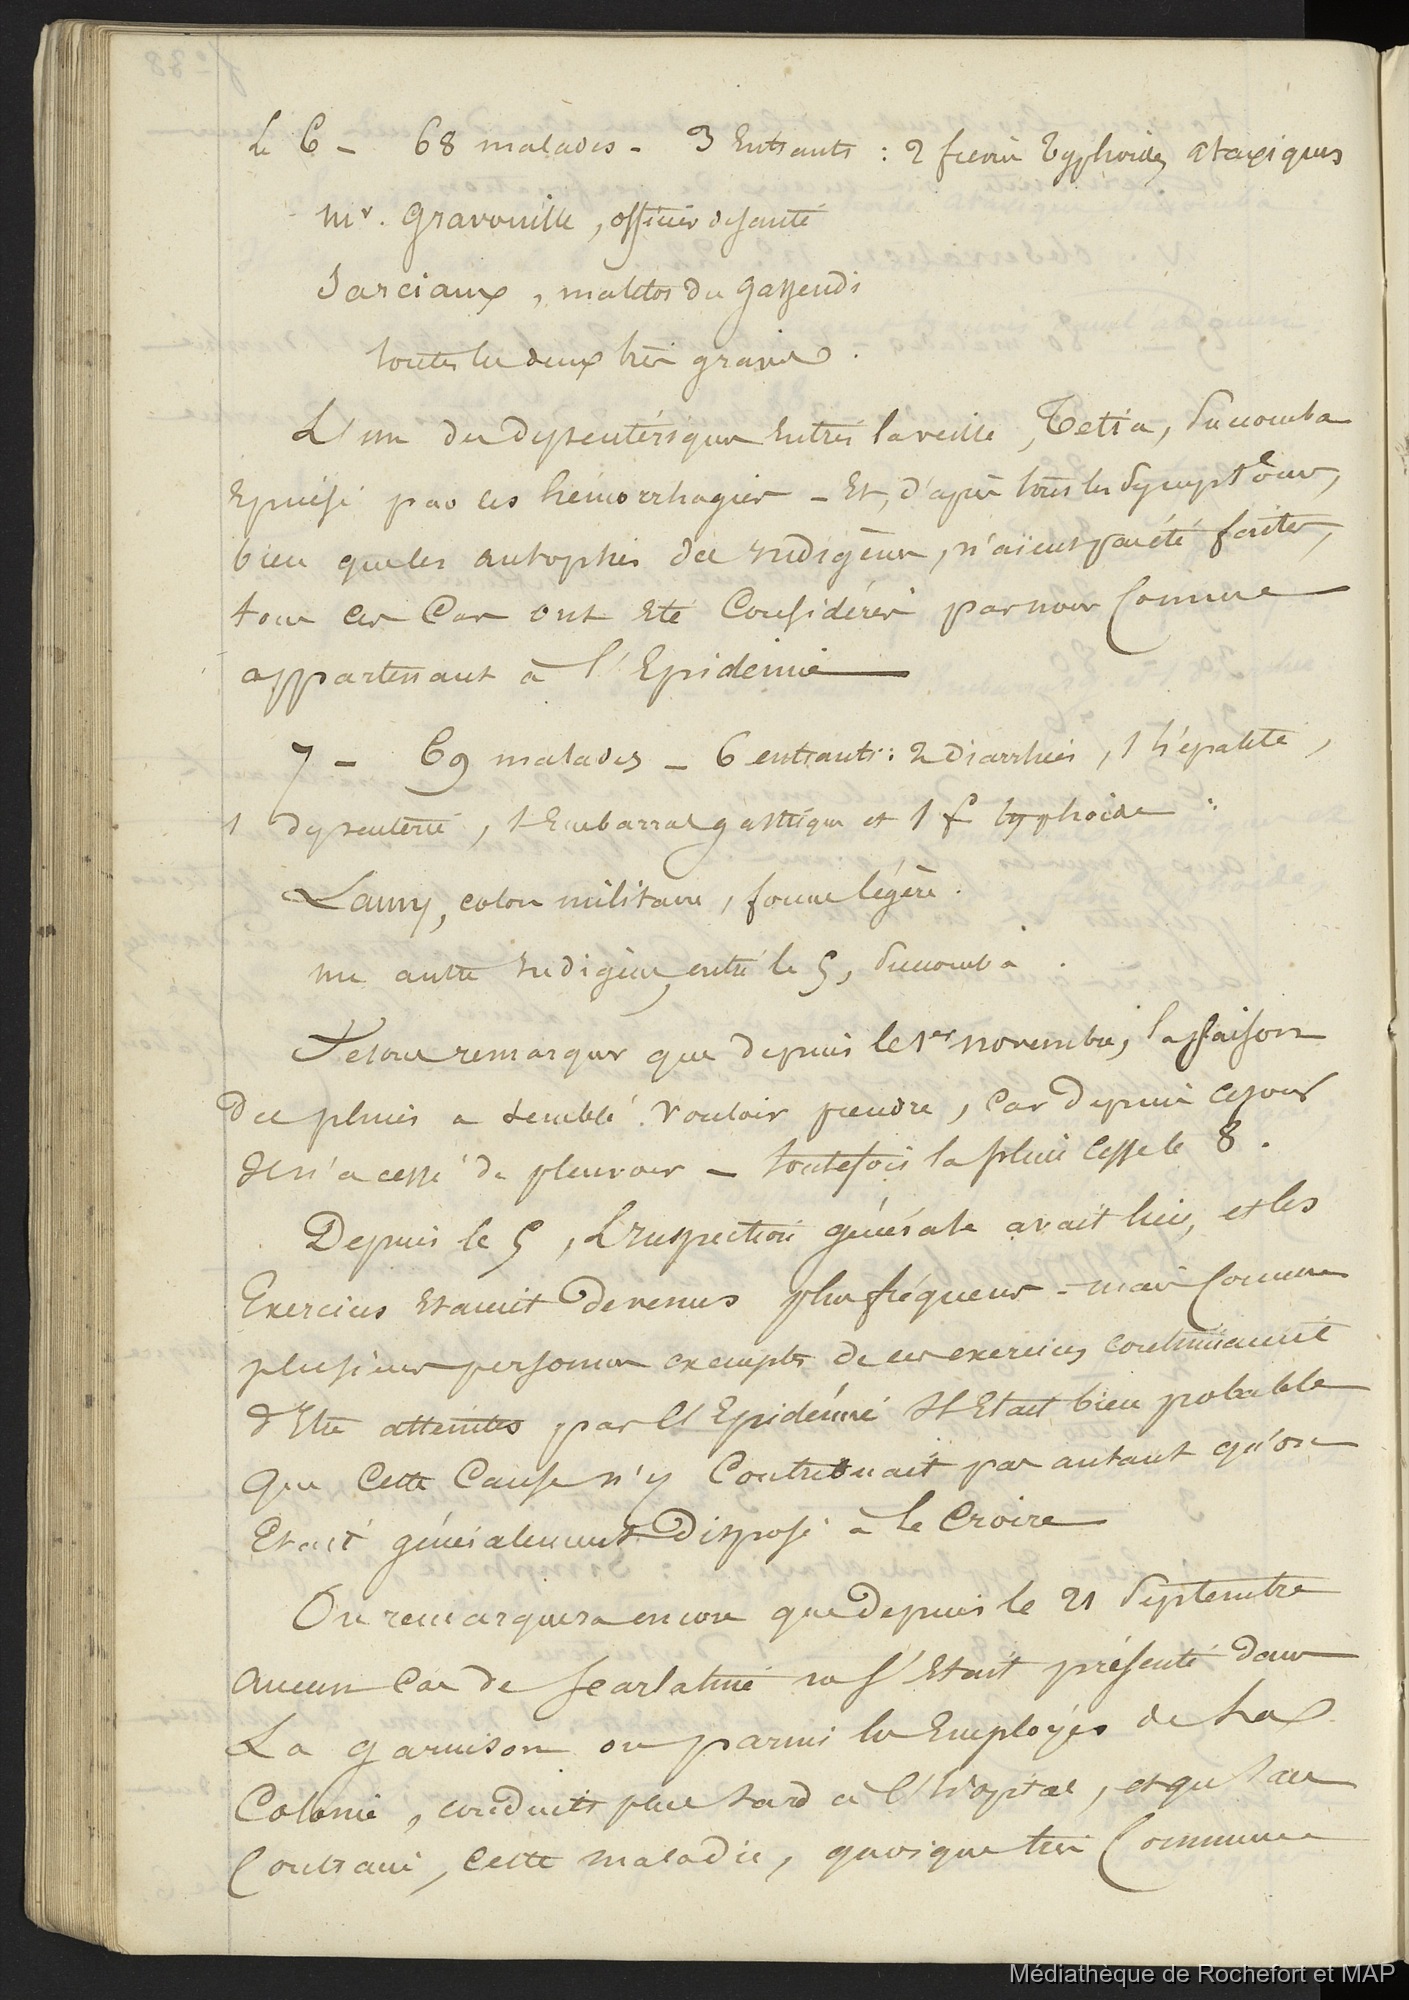 Le 6 – 68 malades – 3 Entrants : 2 fievres typhoides ataxiques
Mr. Gravouille, officier de santé
Sarciaux, matelot du Gassendi
toutes les deux très graves.
L'un des dysenteriques entrés la veille, Tetia, Succomba
Epuisé par les hémorrhagies – Et, d'après tous les Symptômes,
bien que les autopsies des indigènes, n'aient pas été faites,
tous ces Cas ont Eté Considérés par nous Comme
appartenant à l'Epidémie
7 – 69 malades – 6 entrants : 2 diarrhées, 1 hépatite,
1 dysenterie, 1 Embarras gastrique et 1 f. typhoide :
Launy, colon militaire, forme légère.
un autre indigène, entré le 5, Succomba.
que depuis le 1er novembre, la Saison
des pluies a semblé vouloir prendre, Car depuis ce jour
Il n'a cessé de pleuvoir – toutefois la pluie cesse le 8.
Depuis le 5, L'Inspection générale avait lieu, et les
Exercices Etaient Devenus plus fréquents – mais Comme
plusieurs personnes exemptes de ces exercices continuaient
d'Etre atteintes par l'Epidémie Il Etait bien probable
que Cette Cause n'y Contribuait pas autant qu'on
Etait généralement Disposé à le Croire
On remarquera encore que Depuis le 21 Septembre
aucun Cas de Scarlatine ne s'Etait présenté dans
La garnison ou parmi les Employés de la
Colonie, conduits plus tard à l'hôpital, et que sans
Contredit, Cette maladie, quoique très Commune